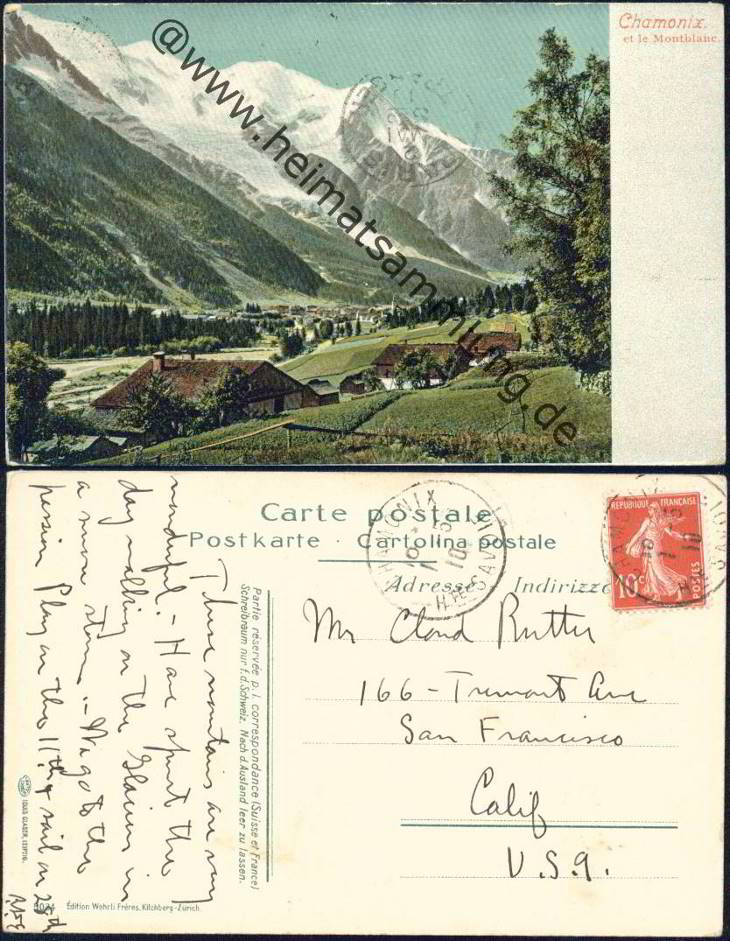 Chamonix.
et le Montblanc.
@www.heimatsammlung.de
Carte postale
Postkarte · Cartolina postale
Adresse Indirizzo
CHAMONIX
Hte SAVOIE
REPUBLIQUE FRANÇAISE
10c
POSTES
Mr Claud Rutter
166 - Tremont Ave
San Francisco
Calif
U.S.A.
Partie réservée p. l. correspondance (Suisse et France)
Schreibraum nur f. d. Schweiz. Nach d. Ausland leer zu lassen.
These mountains are very
wonderful. - Have spent the
day walking on the Glaciers in
a snow storm. - We go to the
Passion Play on the 11th & sail on 28th
LOUIS GLASER, LEIPZIG.
Édition Wehrli Frères, Kilchberg-Zürich.